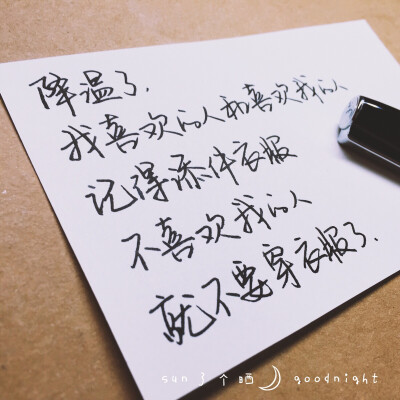 降温了.
我喜欢的人和喜欢我的人
记得添件衣服
不喜欢我的人
就不要穿衣服了.
sun了个晒 goodnight